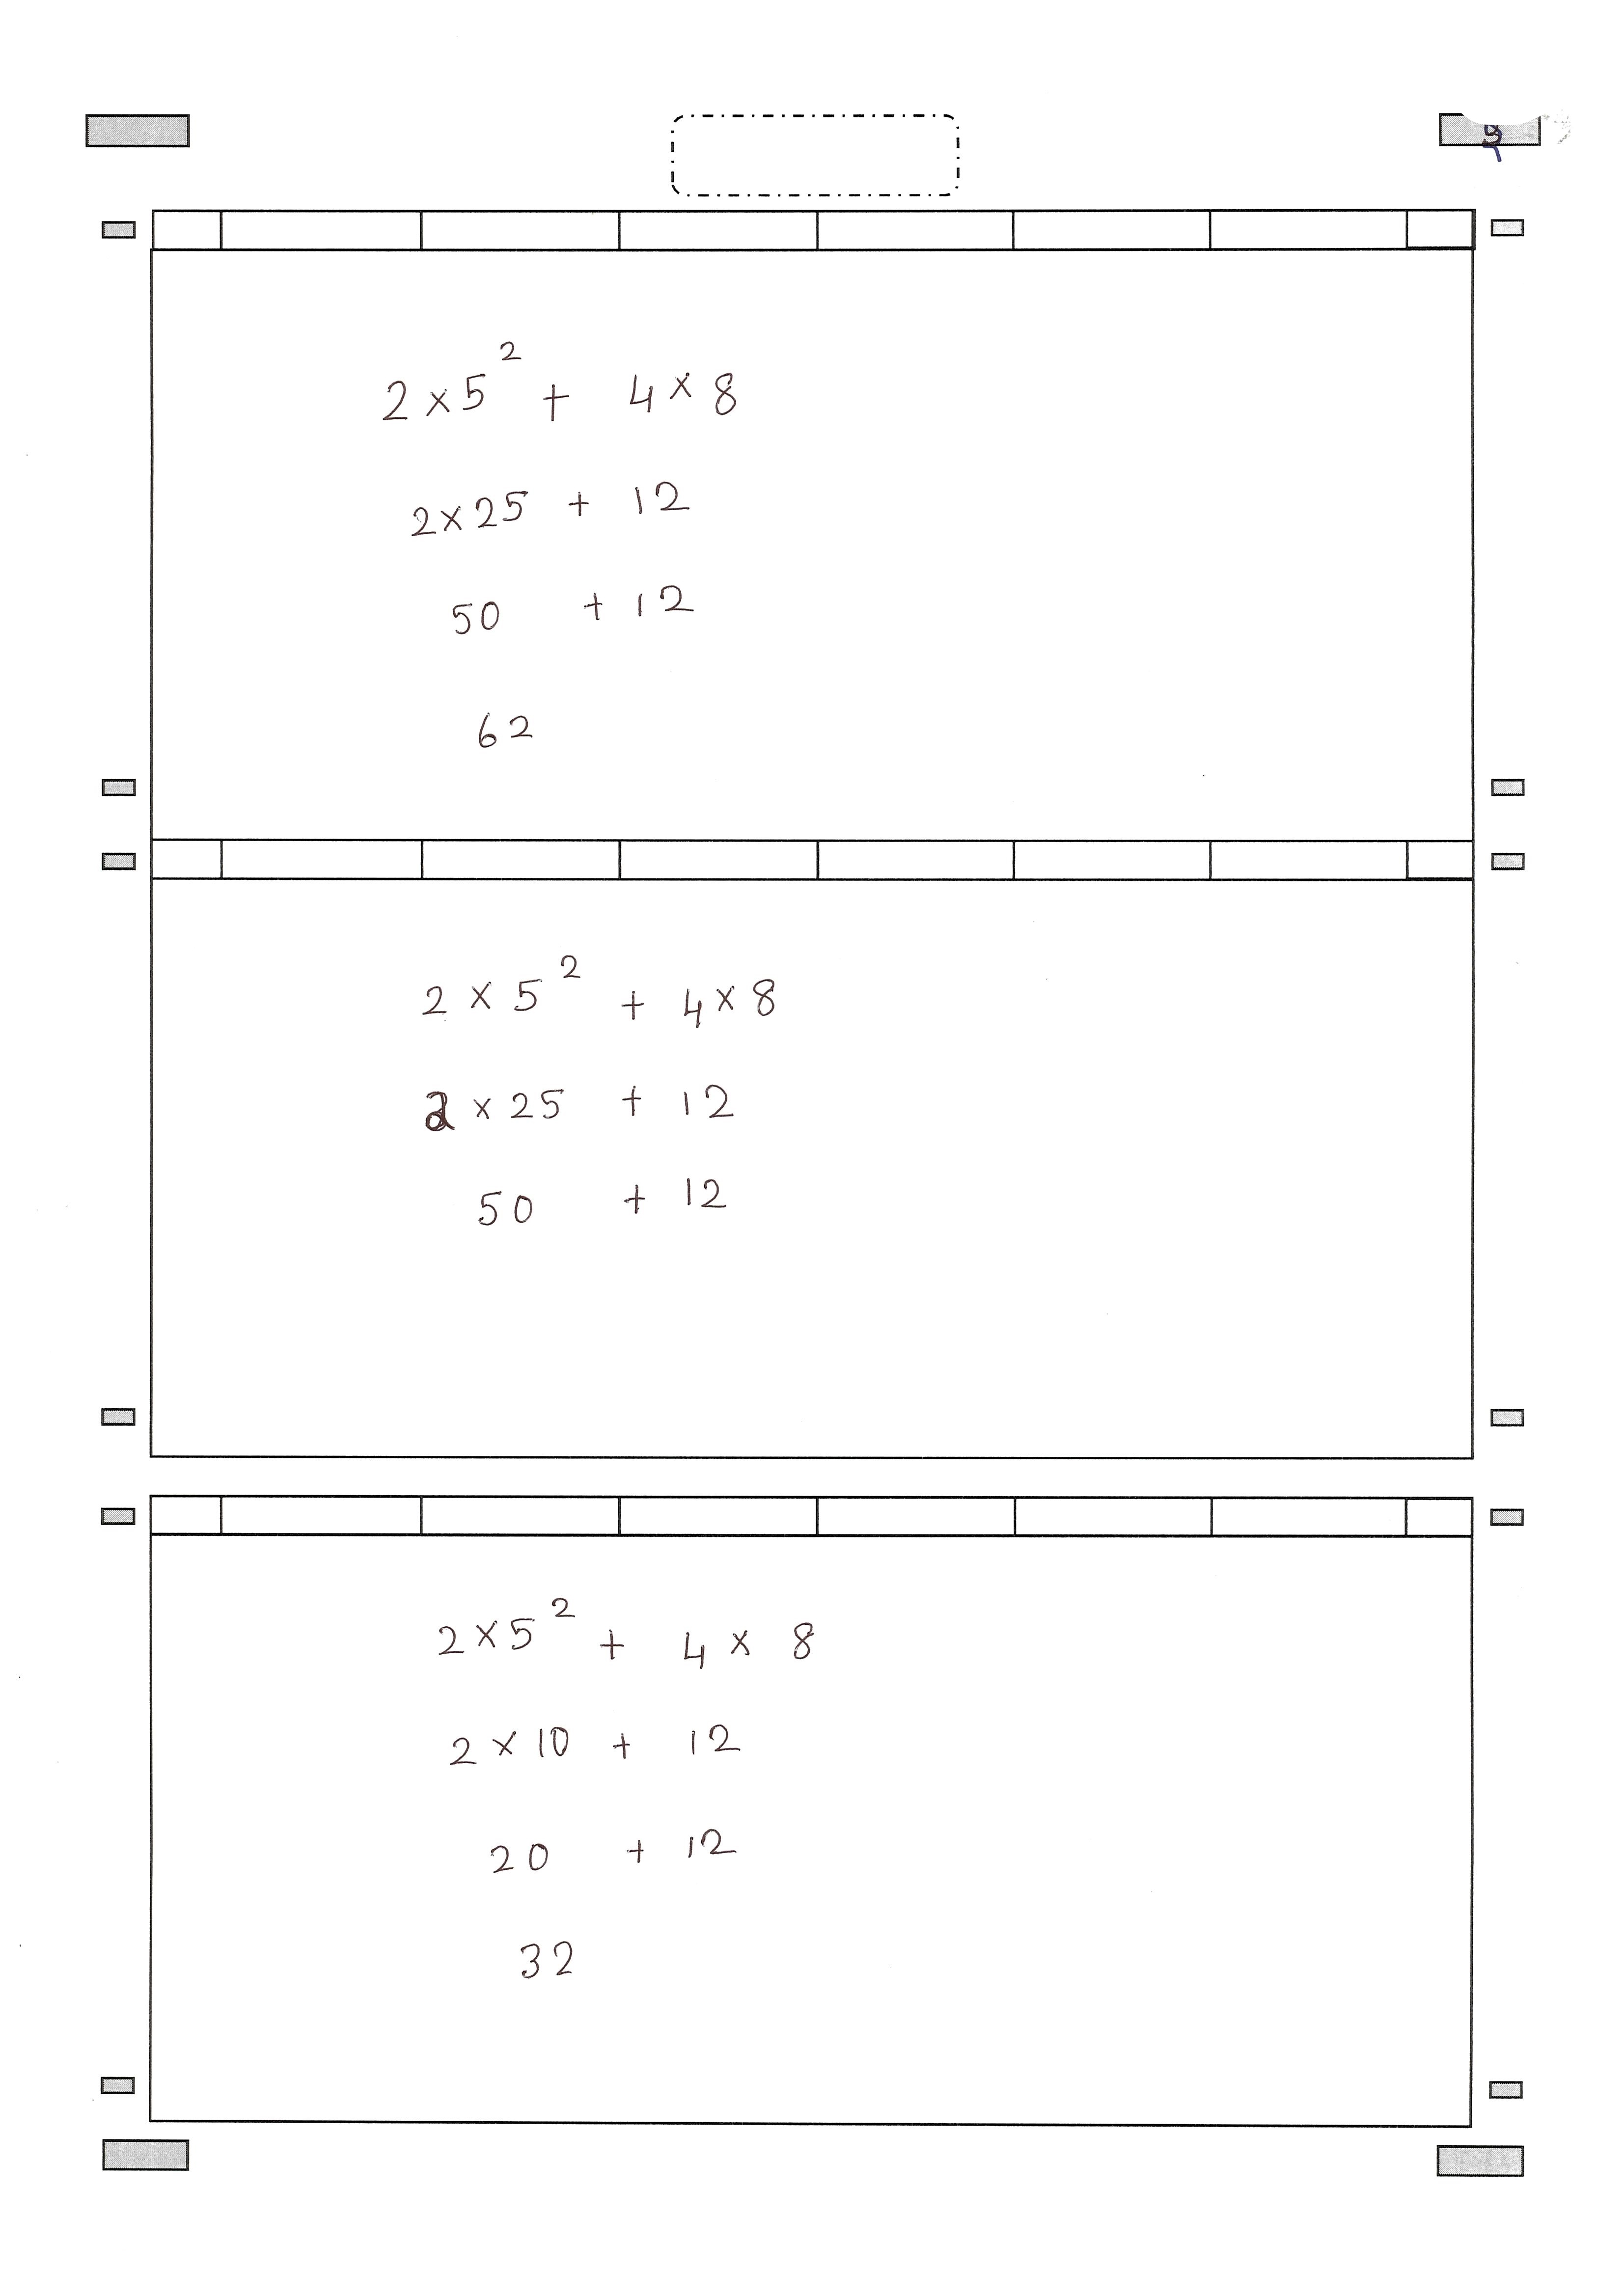 2 × 5² + 4 × 8
2 × 25 + 12
50 + 12
62
2 × 5² + 4 × 8
2 × 25 + 12
50 + 12
2 × 5² + 4 × 8
2 × 10 + 12
20 + 12
32